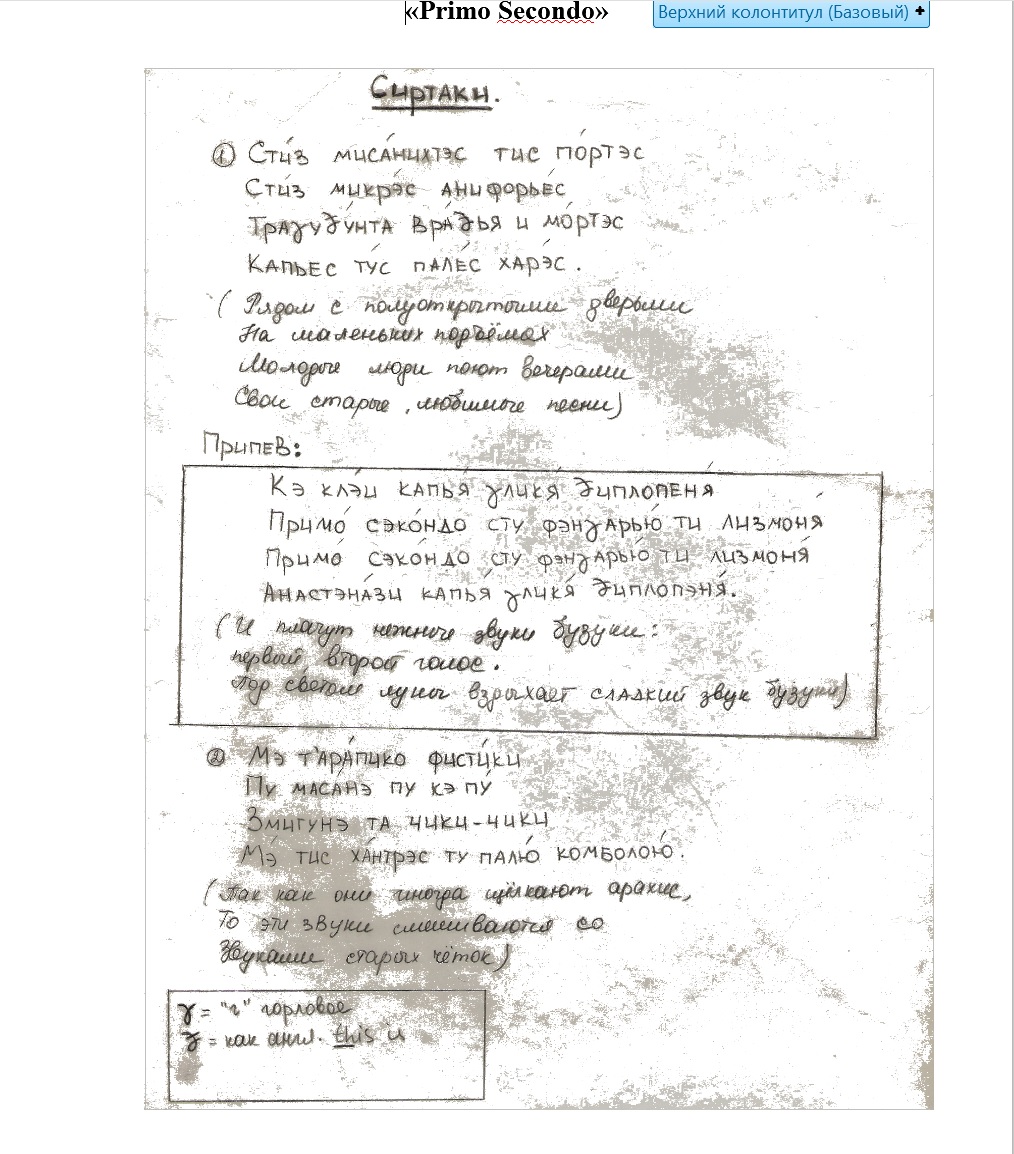 «Primo Secondo»
Верхний колонтитул (Базовый) +
Сиртаки.
① Сти́з миса́нихтэс тис по́ртэс
Сти́з микрэ́с анифорье́с
Траγуδу́нта вра́δья и мо́ртэс
Капьес ту́с пале́с ха́рэс.
(Рядом с полуоткрытыми дверьми
На маленьких подъёмах
Молодые люди поют вечерами
Свои старые, любимые песни)
Припев:
Кэ кла́и капья́ γлика́ δиплопеня́
Примо́ сэко́ндо сту фэнγарью́ ти лизмоня́
Примо́ сэко́ндо сту фэнγарью́ ти лизмоня́
Анастэна́зи капья́ γликя́ δиплопэня́.
(И плачут нежные звуки бузуки:
первый, второй голос.
Под светом луны вздыхает сладкий звук бузуки)
② Мэ т'ара́пико фисти́ки
Пу маса́нэ пу кэ пу́
Змигунэ та чики-чики
Мэ́ тис ха́нтрэс ту палю́ комболою́.
(Так как они иногда щёлкают арахис,
То эти звуки смешиваются со
Звуками старых чёток)
γ = "г" горловое
δ = как англ. this is